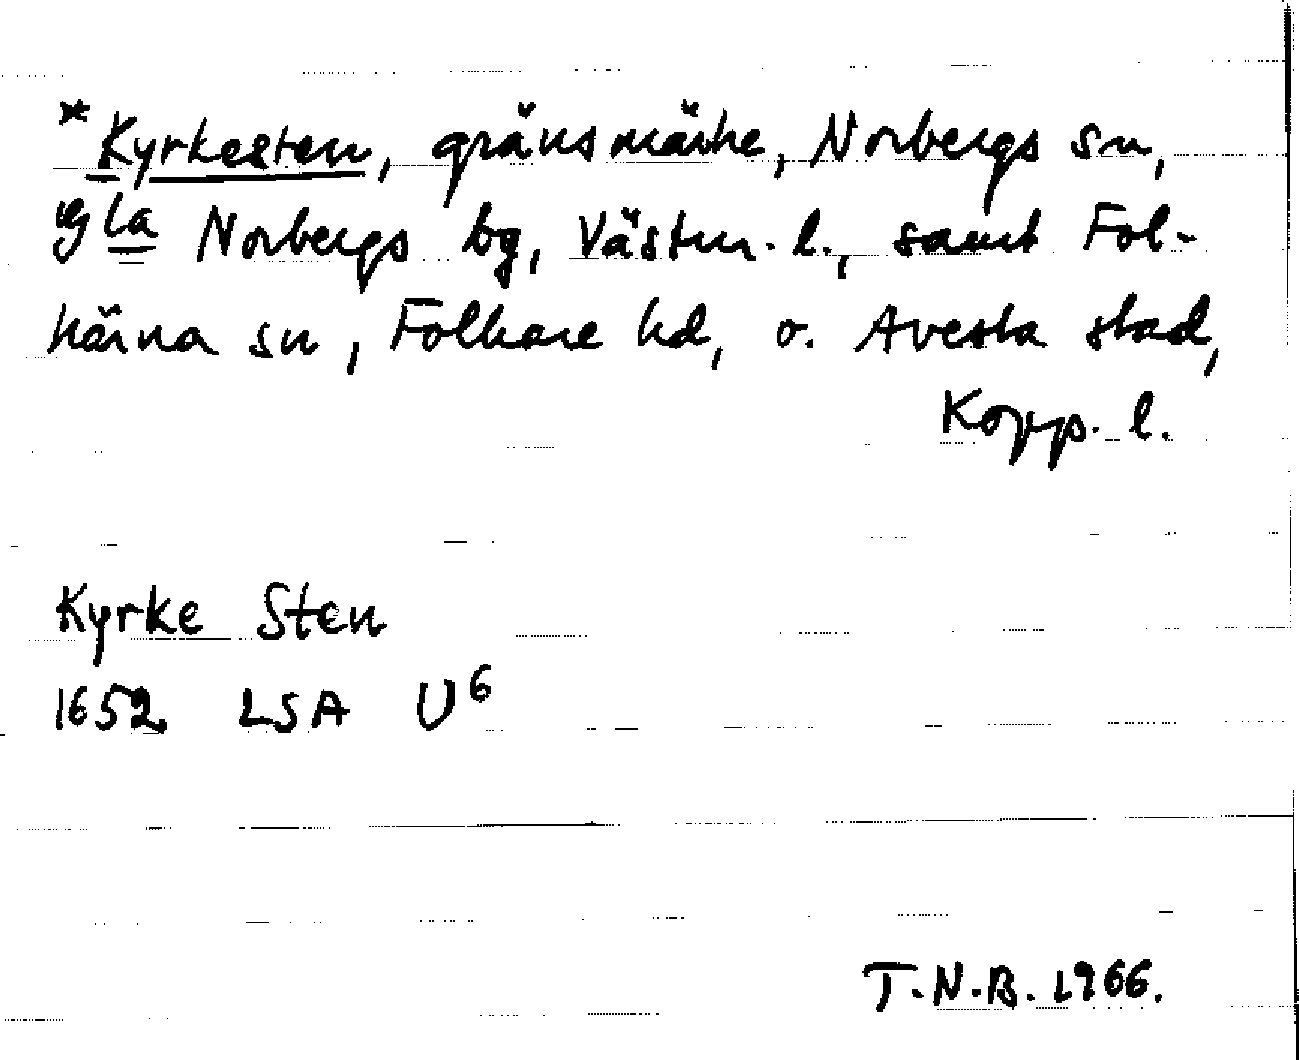 *Kyrkesten, gränsmärke, Norbergs sn,
Gla Norbergs bg, Västm. l., samt Fol-
kärna sn, Folkare hd, o. Avesta stad,
Kopp. l.
Kyrke Sten
1652 LSA U⁶
T.N.B. 1966.